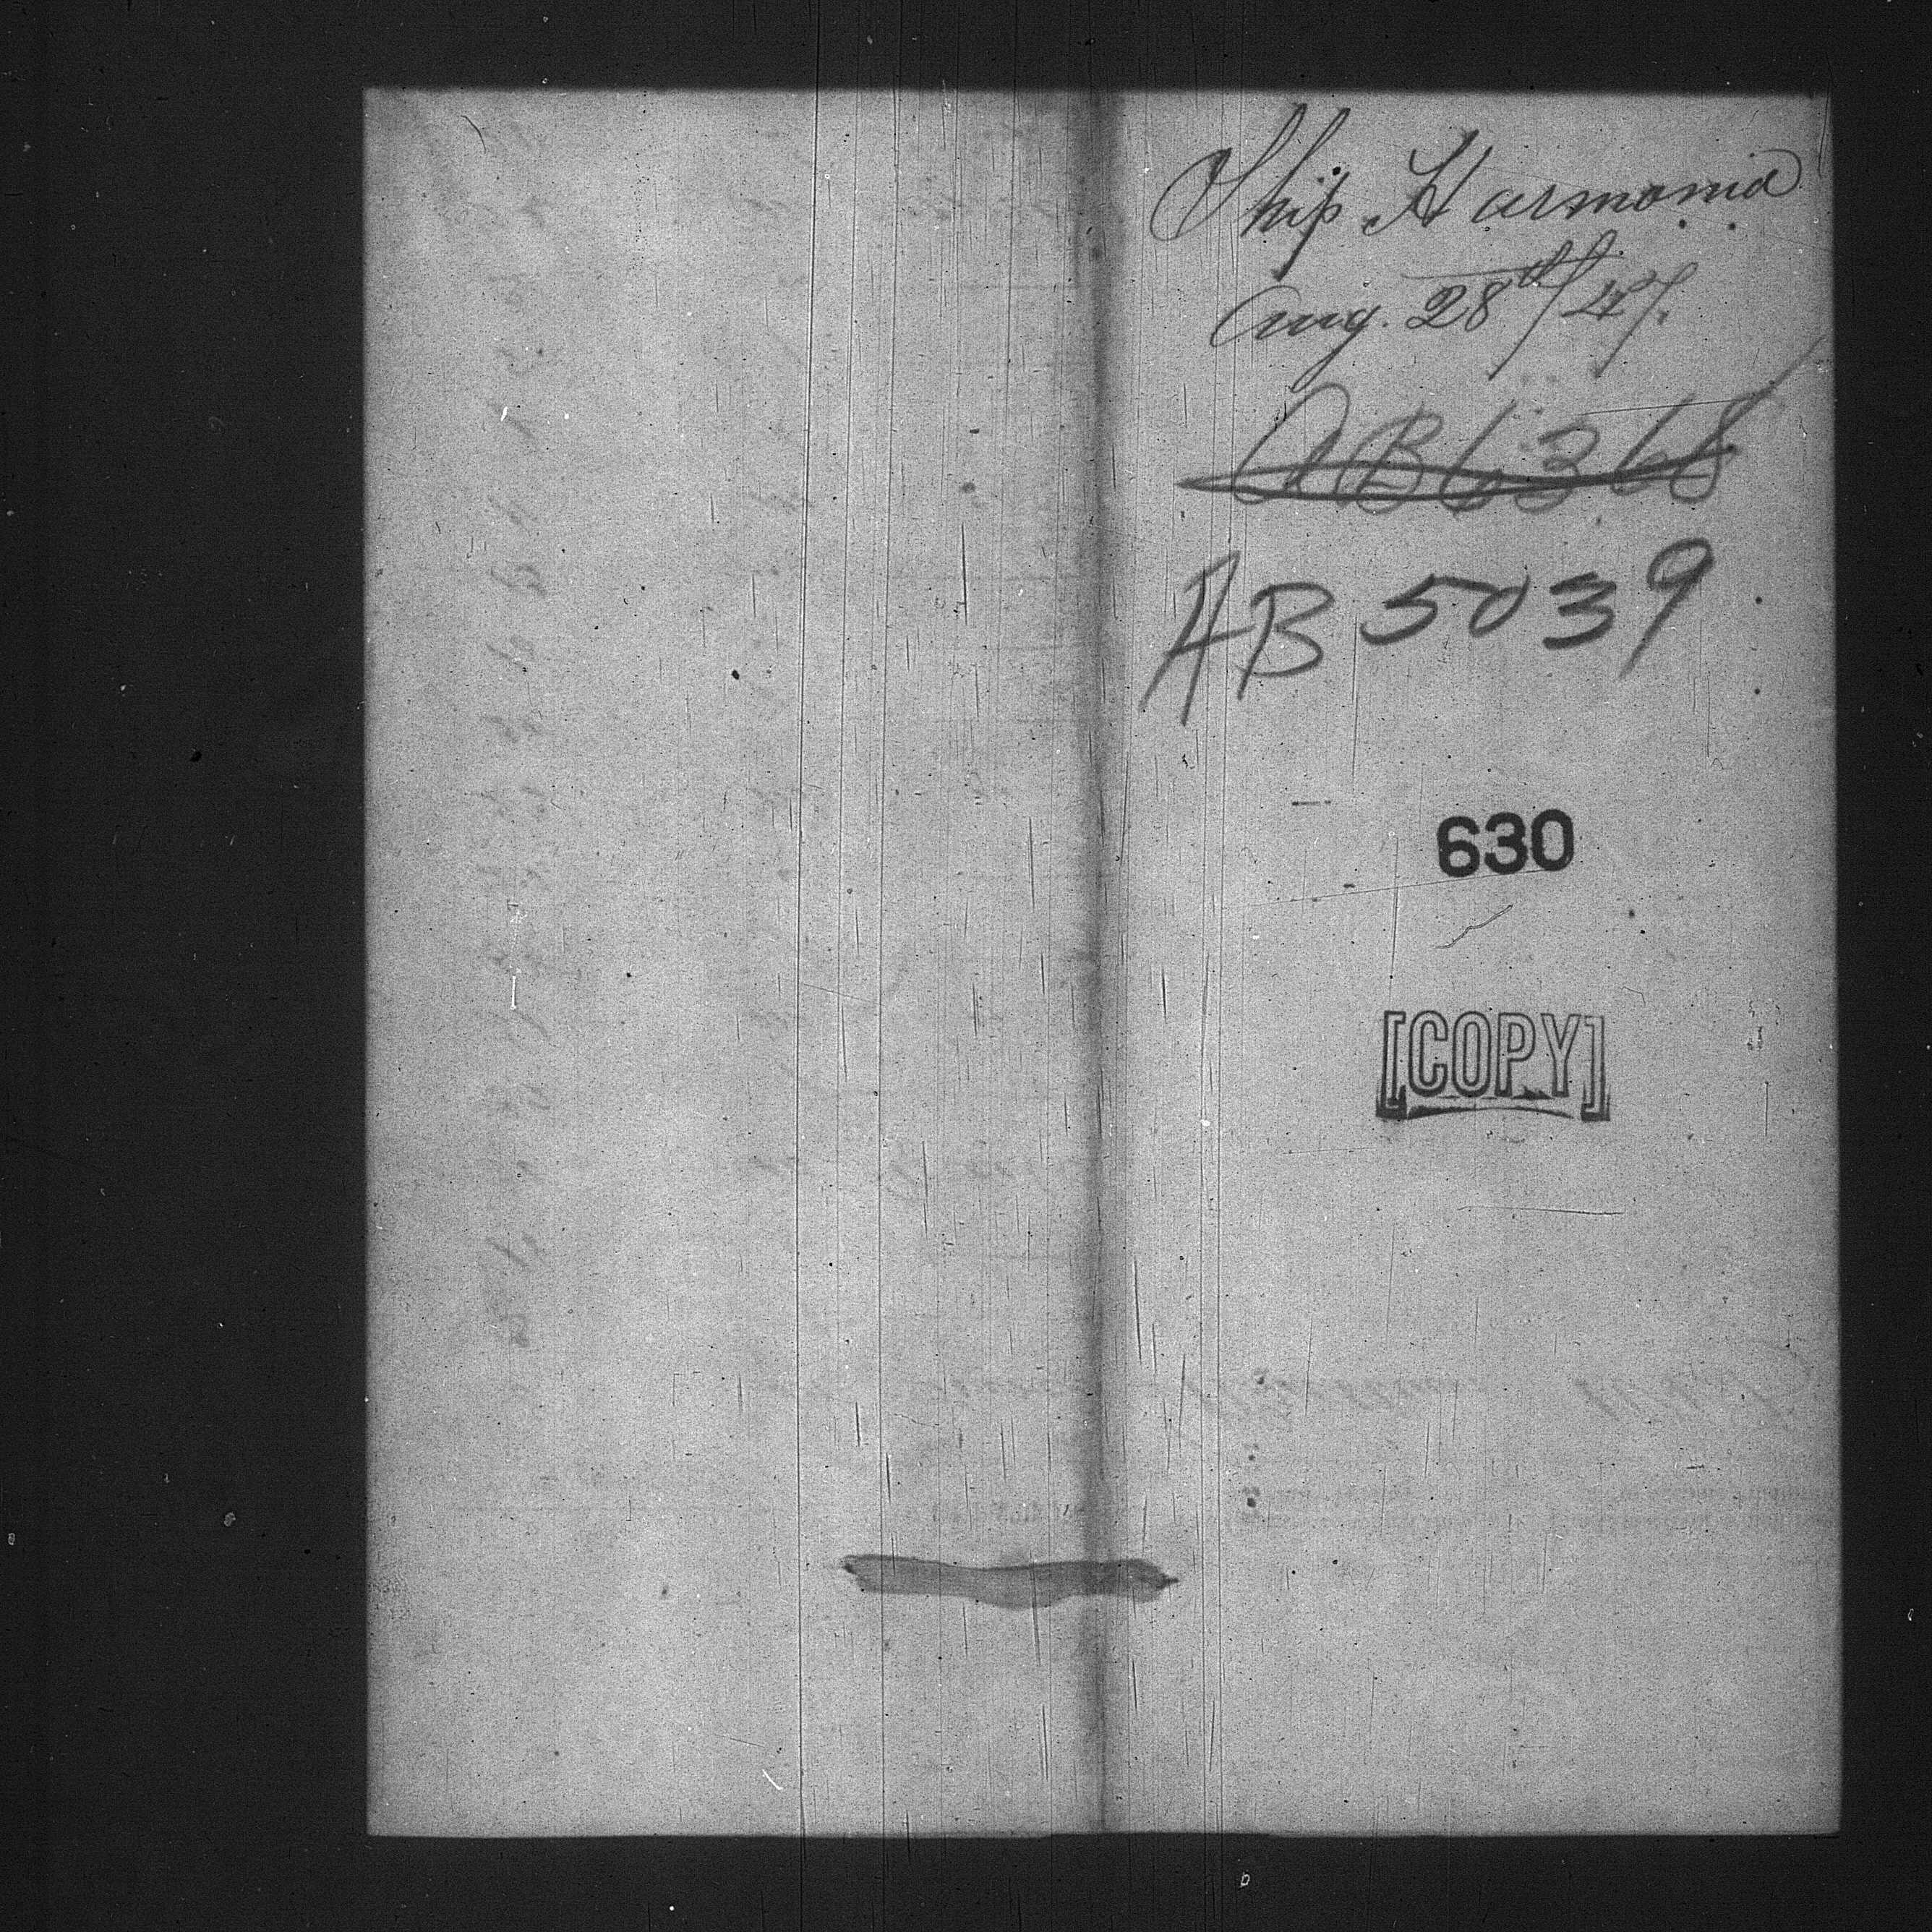 Ship Harmonia
Aug. 28th/47.
AB6368
AB 5039
630
[COPY]